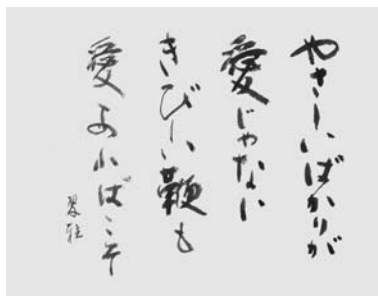 やさしいばかりが
愛じゃない
きびしい鞭も
愛あればこそ